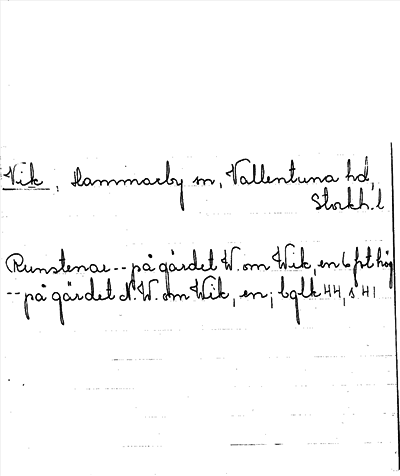 Vik, Hammarby sn, Vallentuna hd,
Stockh. l
Runstenar -- på gärdet W. om Wik, en 6 fot hög
-- på gärdet N. W. om Wik, en; bglk 44, s 41